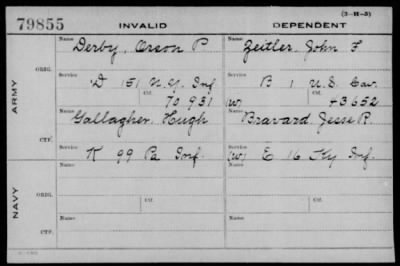 (3-H-5)
79855 INVALID DEPENDENT
ARMY
ORIG.
Name Derby, Orson P Name Zeitler, John F
Service D 151 N.Y. Inf Service B 1 U.S. Cav.
Ctf. 70 931 (W) Ctf. 43652
CTF.
Name Gallagher, Hugh Name Bravard, Jesse R.
Service K 99 Pa Inf. Service (W) E 16 Ky Inf.
NAVY
ORIG.
Name Name
Service Ctf. Service Ctf.
CTF.
Name Name
Service Service